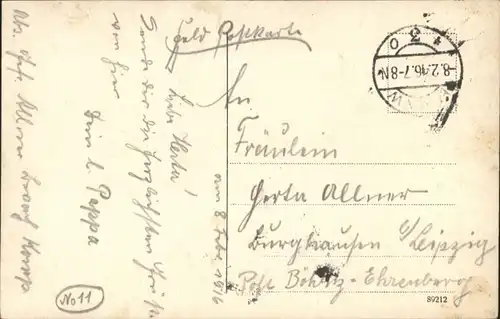 Feld Postkarte
Liebe Herta!
Sende dir die herzlichsten Grüße
von hier
Dein l. Pappa
am 8 Febr 1916
No 11
-8.2.16.7-8N
An
Fräulein
Herta Allner
Burghausen b/Leipzig
Post Böhlitz-Ehrenberg
89212